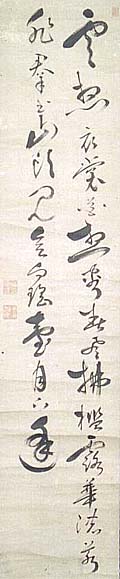 雲想衣裳花想容春風拂檻露華濃若
非羣玉山頭見會向瑤臺月下逢